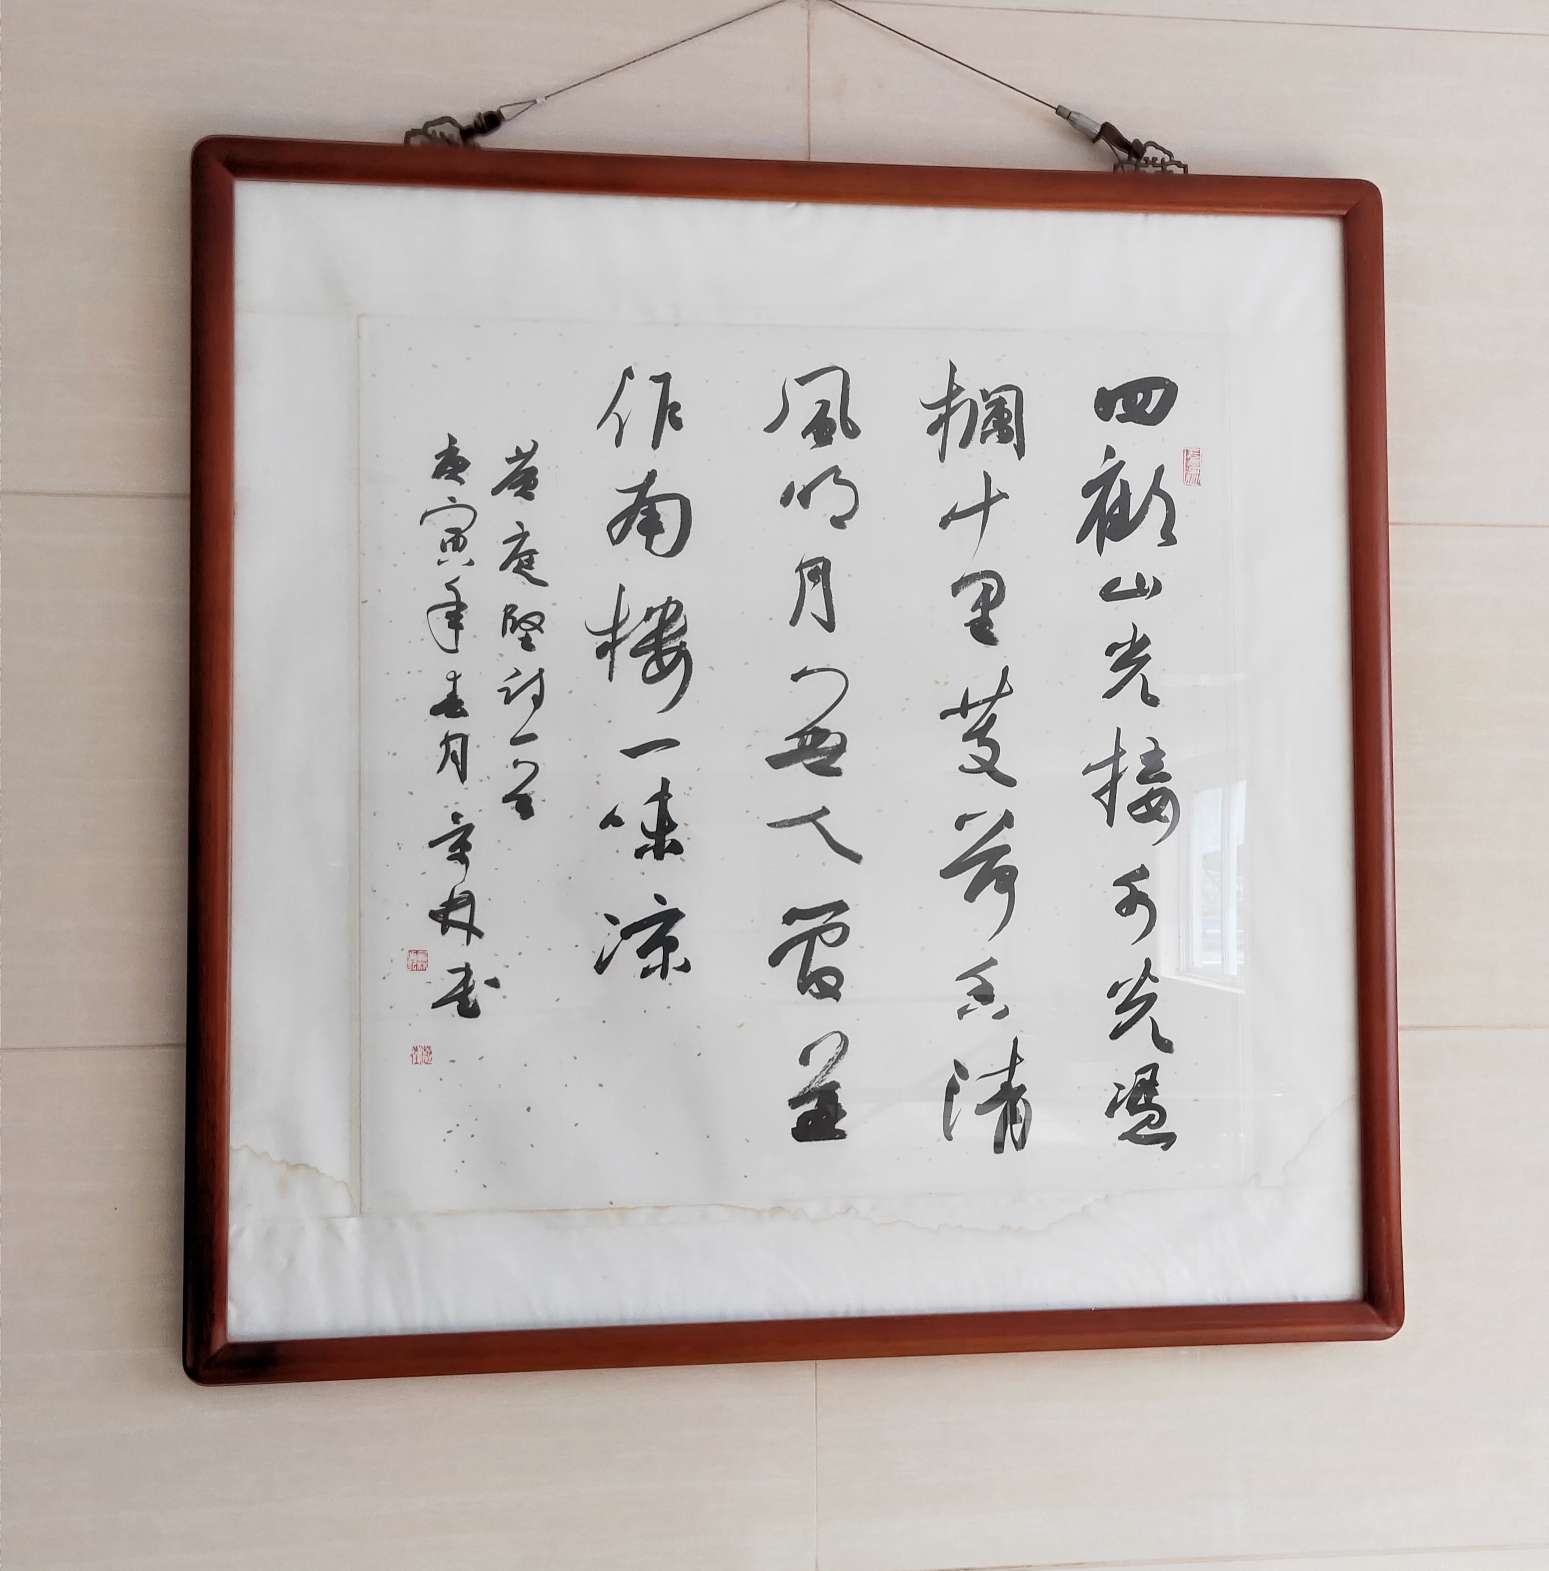 四顧山光接水光憑
欄十里芰荷香清
風明月無人管並
作南樓一味涼
黃庭堅詩一首
庚寅年春月 書